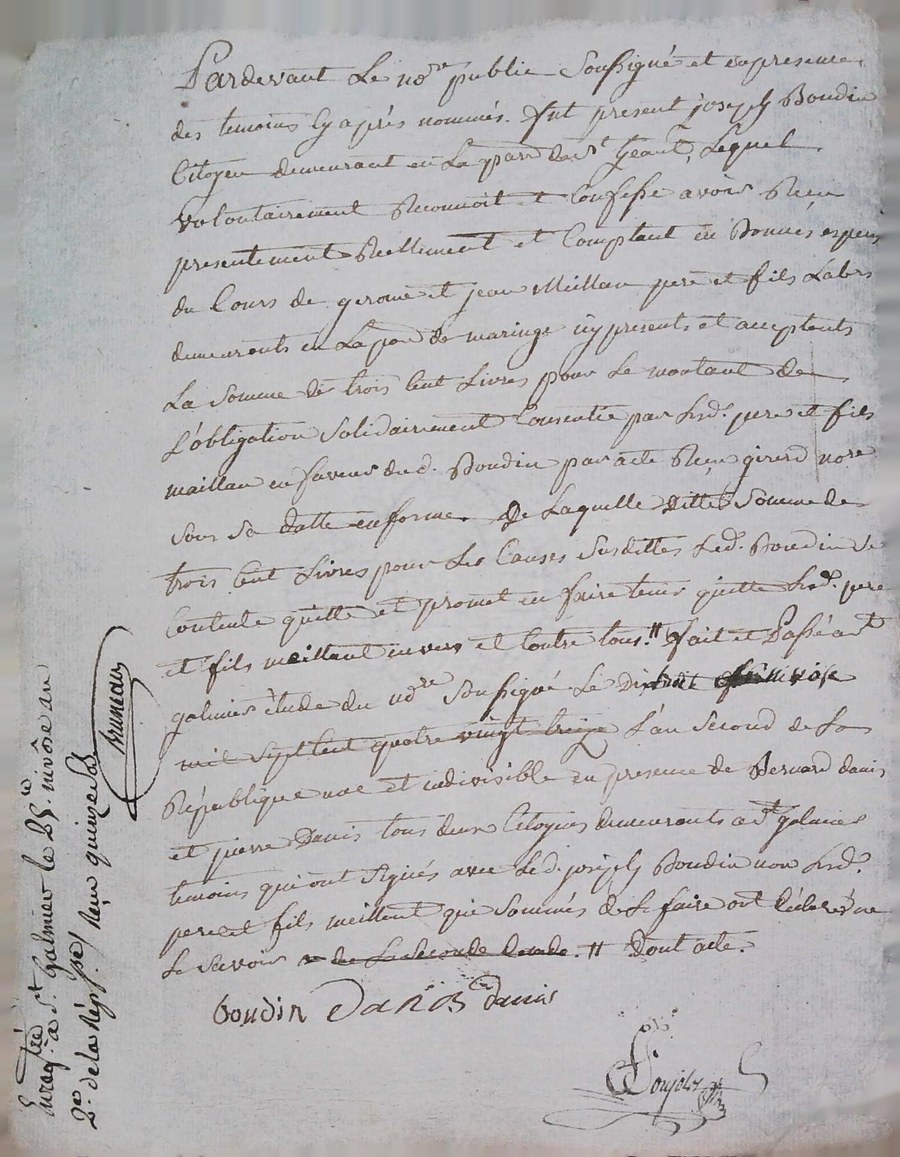 Pardevant Le no.re public Soussigné et en presence
des temoins Cy après nommés. fut present joseph Boudin
Citoyen demeurant en La par. de St Geant, Lequel
Volontairement Reconnoit et Confesse avoir Reçu
presentement Reellement et Comptant en Bonnes especes
du Cours de gerome et jean Meillan pere et fils Labrs
demeurants en La par. de maringe icy presents et acceptants
La Somme de trois Cent Livres pour Le montant de
L'obligation Solidairement Consentie par Lesd. pere et fils
maillan en faveur dud. Boudin par acte Reçu girerd nore
Sous Sa datte en forme. De Laquelle ditte Somme de
trois Cent Livres pour Les Causes Susdittes Led. Boudin Se
Contente quitte et promet en faire tenir quitte Lesd. pere
et fils meillant envers et Contre tous. fait et Passé a St
galmier étude du nore Soussigné Le nivose
mil Sept Cent quatre vingt treize L'an Second de La
République une et indivisible en presence de Bernard danis
et pierre Danis tous deux Citoyens demeurants a St galmier
temoins qui ont Signés avec Led. joseph Boudin non Lesd.
pere et fils meillent que Sommés de Le faire ont déclaré ne
Le Savoir de La Seconde dont acte.
boudin Danis danis
Enregtré. à St. Galmier le 25. nivôse an
2e. de la Rép. fse/ Reçu quinze sols
Bruneau